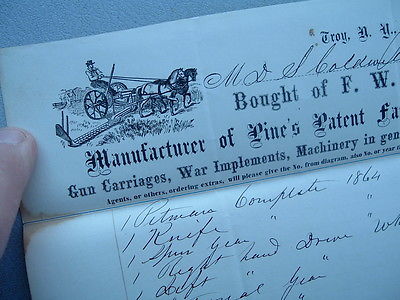 Troy, N. Y.,
M D S Coldwell
Bought of F. W.
Manufacturer of Pine's Patent Fa
Gun Carriages, War Implements, Machinery in gen
Agents, or others, ordering extras, will please give the No. from diagram, also No. or year
1 Pitman Complete 1864
1 Knife "
1 Spur Gear "
1 Right hand Drive Wh
1 Left " "
Gear "